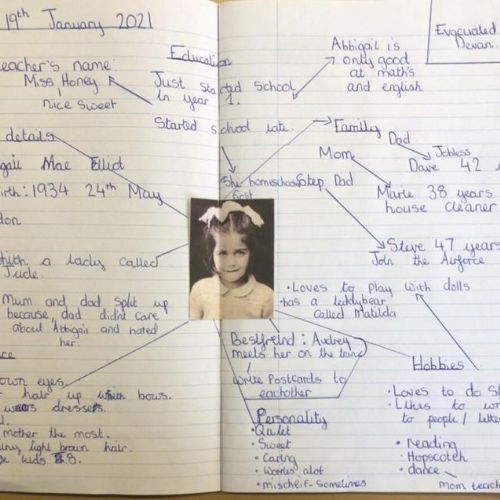 19th January 2021
eacher's name:
Miss Honey
Nice sweet
details
gail Mae Elliot
irth: 1934 24th May
don
with a lady called
Jude.
Mum and dad split up
because dad didnt care
about Abbigail and hated
her
ce
own eyes.
hair up with bows.
dresses.
mother the most.
light brown hair.
kids
Education
Just started School
in year 1.
Started school late.
She homeschool
first
Abbigail is
only good
at maths
and english
Evacuated
Devan.
Family
Dad
Jobless
Dave 42
Mom
Marie 38 years
house cleaner
Step Dad
Steve 47 years
Join the Airforce
• Loves to play with dolls
has a teddybear
called Matilda
Bestfreind: Audrey
meets her on the train
write Postcards to
eachother
Hobbies
• Loves to do
• Likes to
to people /
• reading
• Hopscotch
• dance
mom
Personality
• Quiet
• Sweet
• Caring
• Worries alot
• mischeif-sometimes